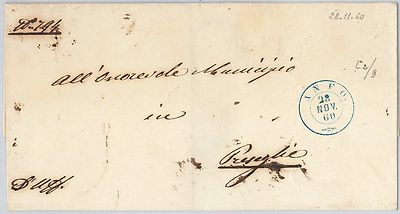 28.11.60
N° 794
C2/9
all'Onorevole Municipio
ANFO
28
NOV.
60
in
Preseglie
D'Uff.